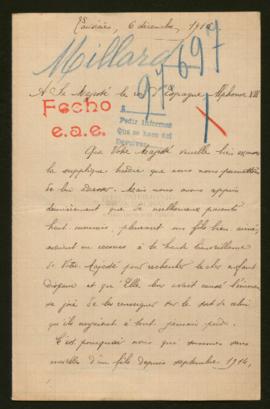 6 décembre, 1914
Millard
97697
A Sa Majesté le roi d'Espagne Alphonse XIII
Fecho
e.a.e.
A
Pedir informes
Que se hace del
1
Que Votre Majesté veuille bien
la supplique que nous nous permettons
de lui Mais nous avons appris
dernièrement que de malheureux parents
pleurant un fils bien aimé,
avaient eu recours à la haute bienveillance
de Votre Majesté pour rechercher le cher enfant
disparu et que Elle leur avait causé l'immense
joie de les renseigner sur le sort de celui
qu'ils croyaient à tout jamais perdu.
C'est pourquoi nous qui sommes sans
nouvelles d'un fils depuis septembre 1914,